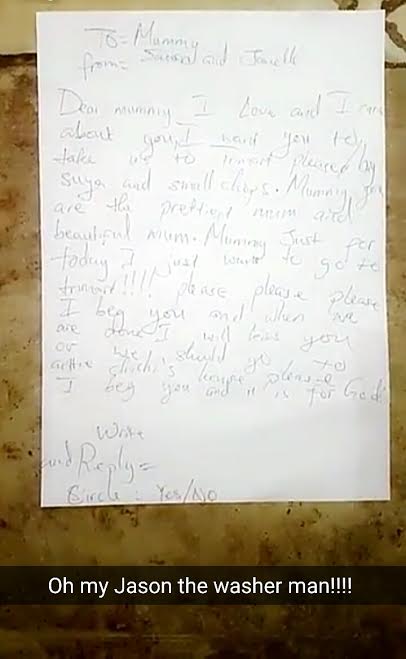 To= Mummy
from= and Janelle
Dear mummy I Love and I care
about you, I want you to
take us to trimart please buy
suya and small chops. Mummy you
are the prettiest mum and
beautiful mum. Mummy Just for
today I just want to go to
trimart!!!! please please please
I beg you and when we
are done I will love you
or we should go to
chichi's house please
I beg you and it is for God
Write
and Reply=
Circle: Yes/No
Oh my Jason the washer man!!!!